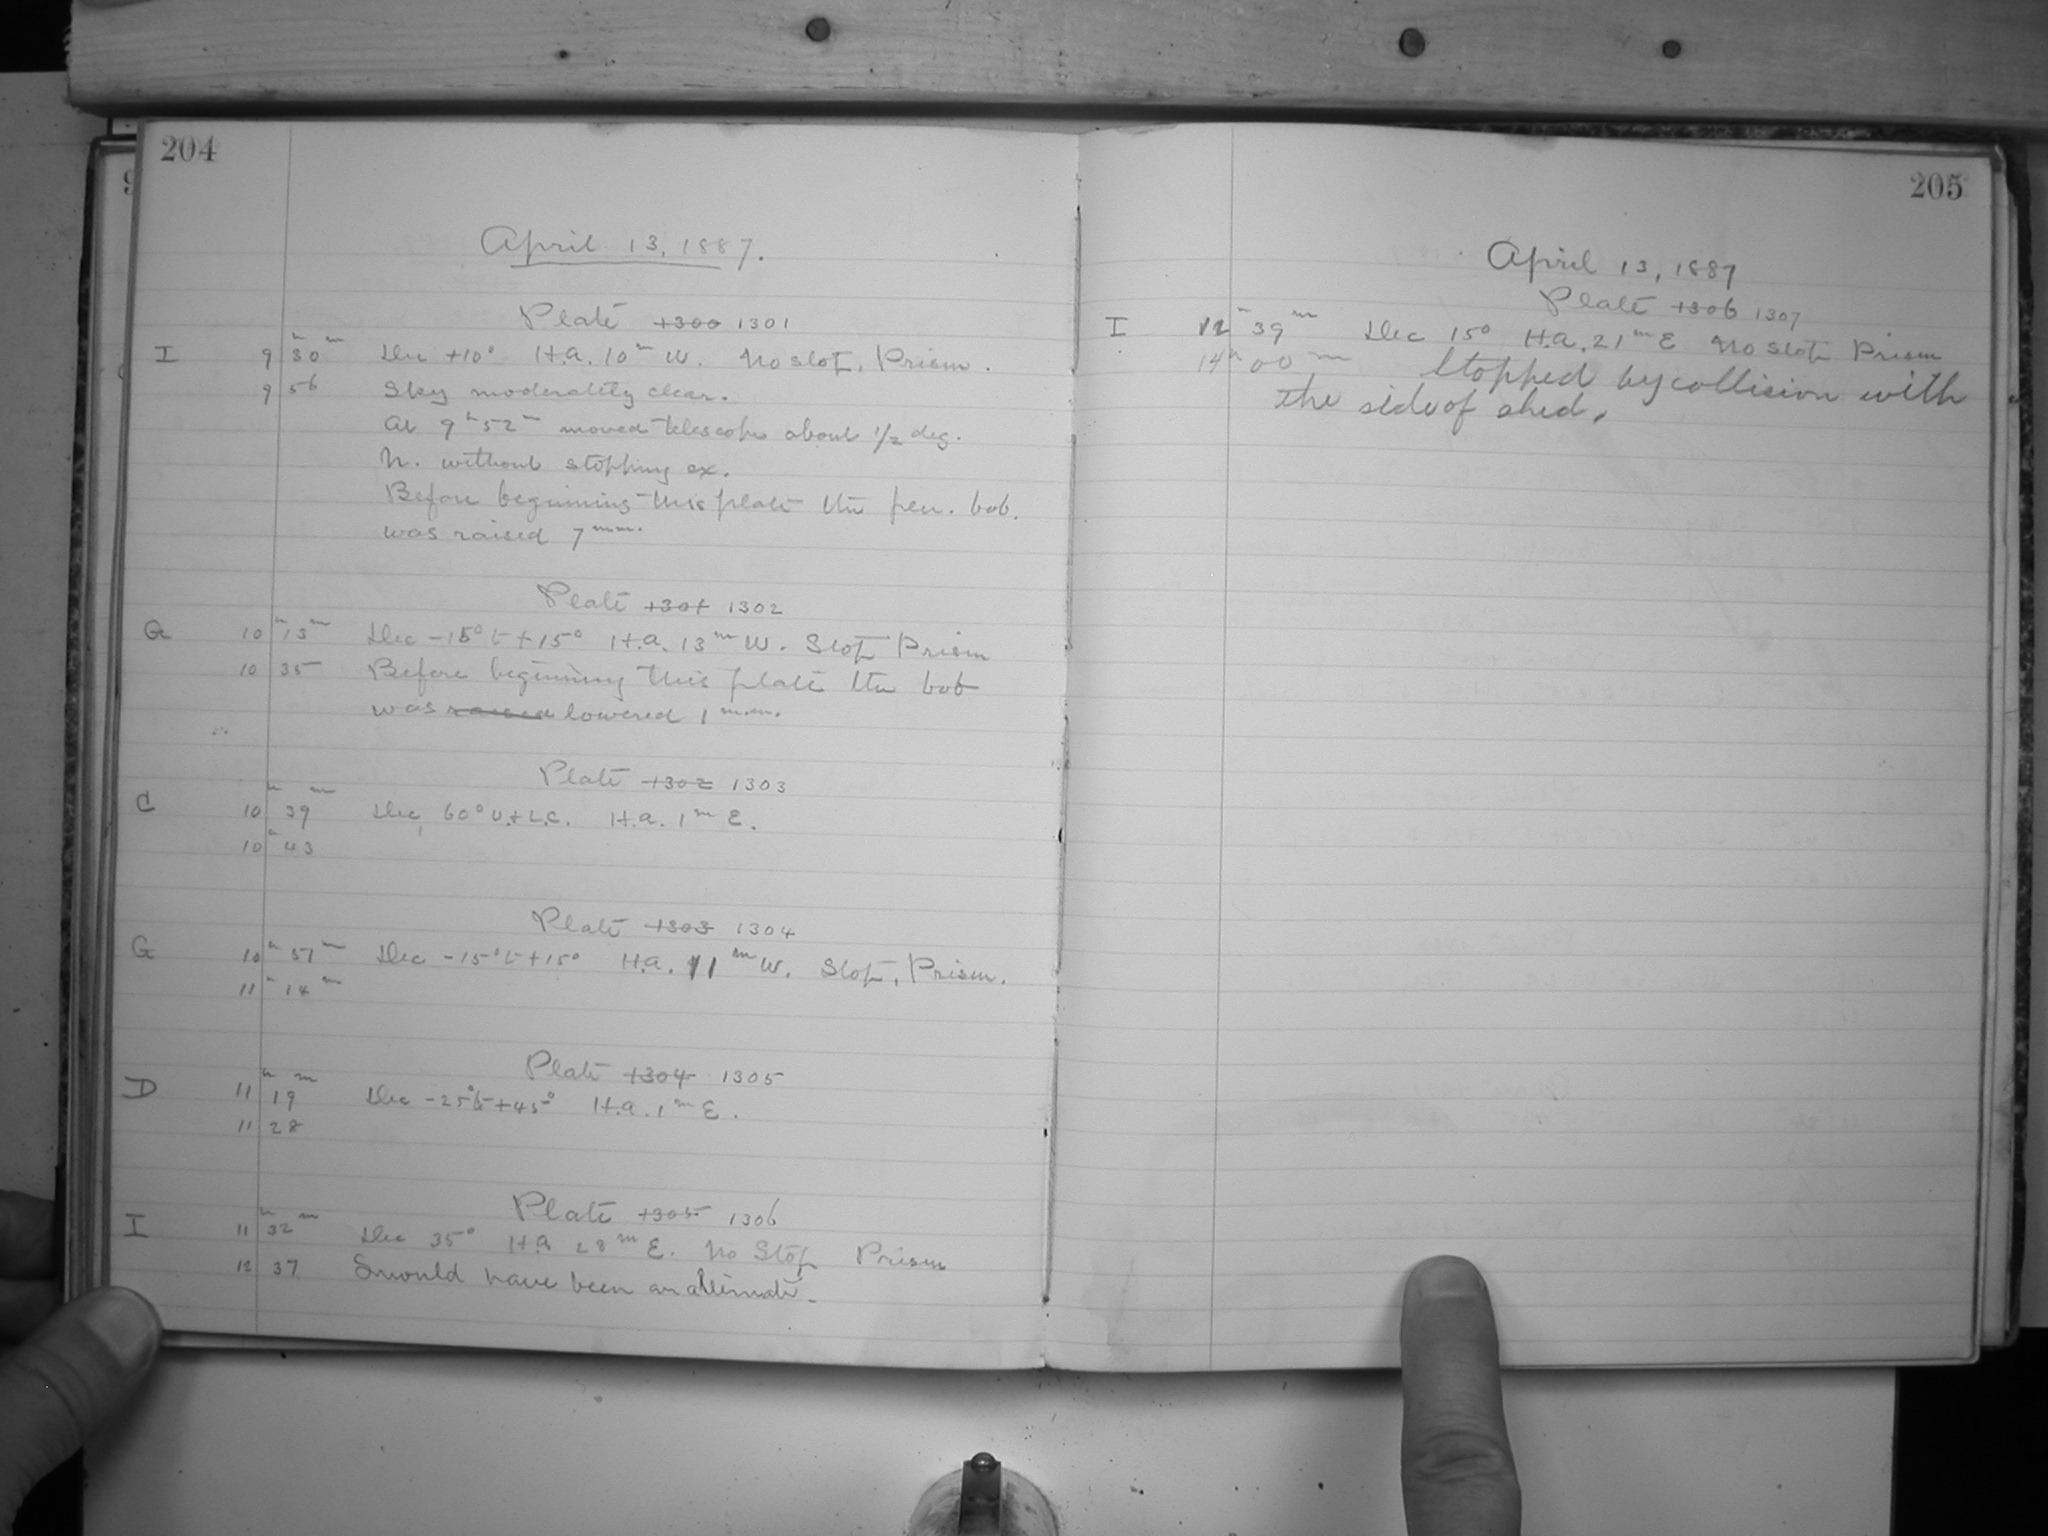 204
April 13, 1887.
Plate 1300 1301
I 9 h 30 m Dec +10° H.a. 10 m W. No stop, Prism.
9 56 Sky moderately clear.
At 9 h 52 m moved telescope about 1/2 deg.
N. without stopping ex.
Before beginning this plate the pen. bob.
was raised 7 mm.
Plate 1301 1302
G 10 h 13 m Dec -15° t +15° H.a. 13 m W. Stop Prism
10 35 Before beginning this plate the bob
was raised lowered 1 m.m.
Plate 1302 1303
C 10 h 39 m Dec, 60° U.+L.C. H.a. 1 m E.
10 h 43
Plate 1303 1304
G 10 h 51 m Dec -15° t +15° H.a. 11 m W. Stop, Prism.
11 h 14 m
Plate 1304 1305
D 11 h 19 m Dec -25° t +45° H.a. 1 m E.
11 28
Plate 1305 1306
I 11 h 32 m Dec 35° H.a 28 m E. No Stop Prism
12 37 Should have been an alternate.
205
April 13, 1887
Plate 1306 1307
I 12 h 39 m Dec 15° H.a. 21 m E No Stop Prism
14 h 00 m Stopped by collision with
the side of shed.